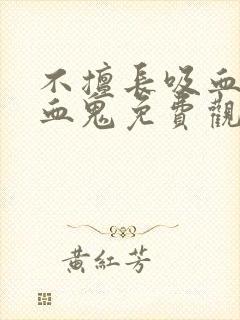 不擅長吸血
血鬼免費觀
黃紅芳